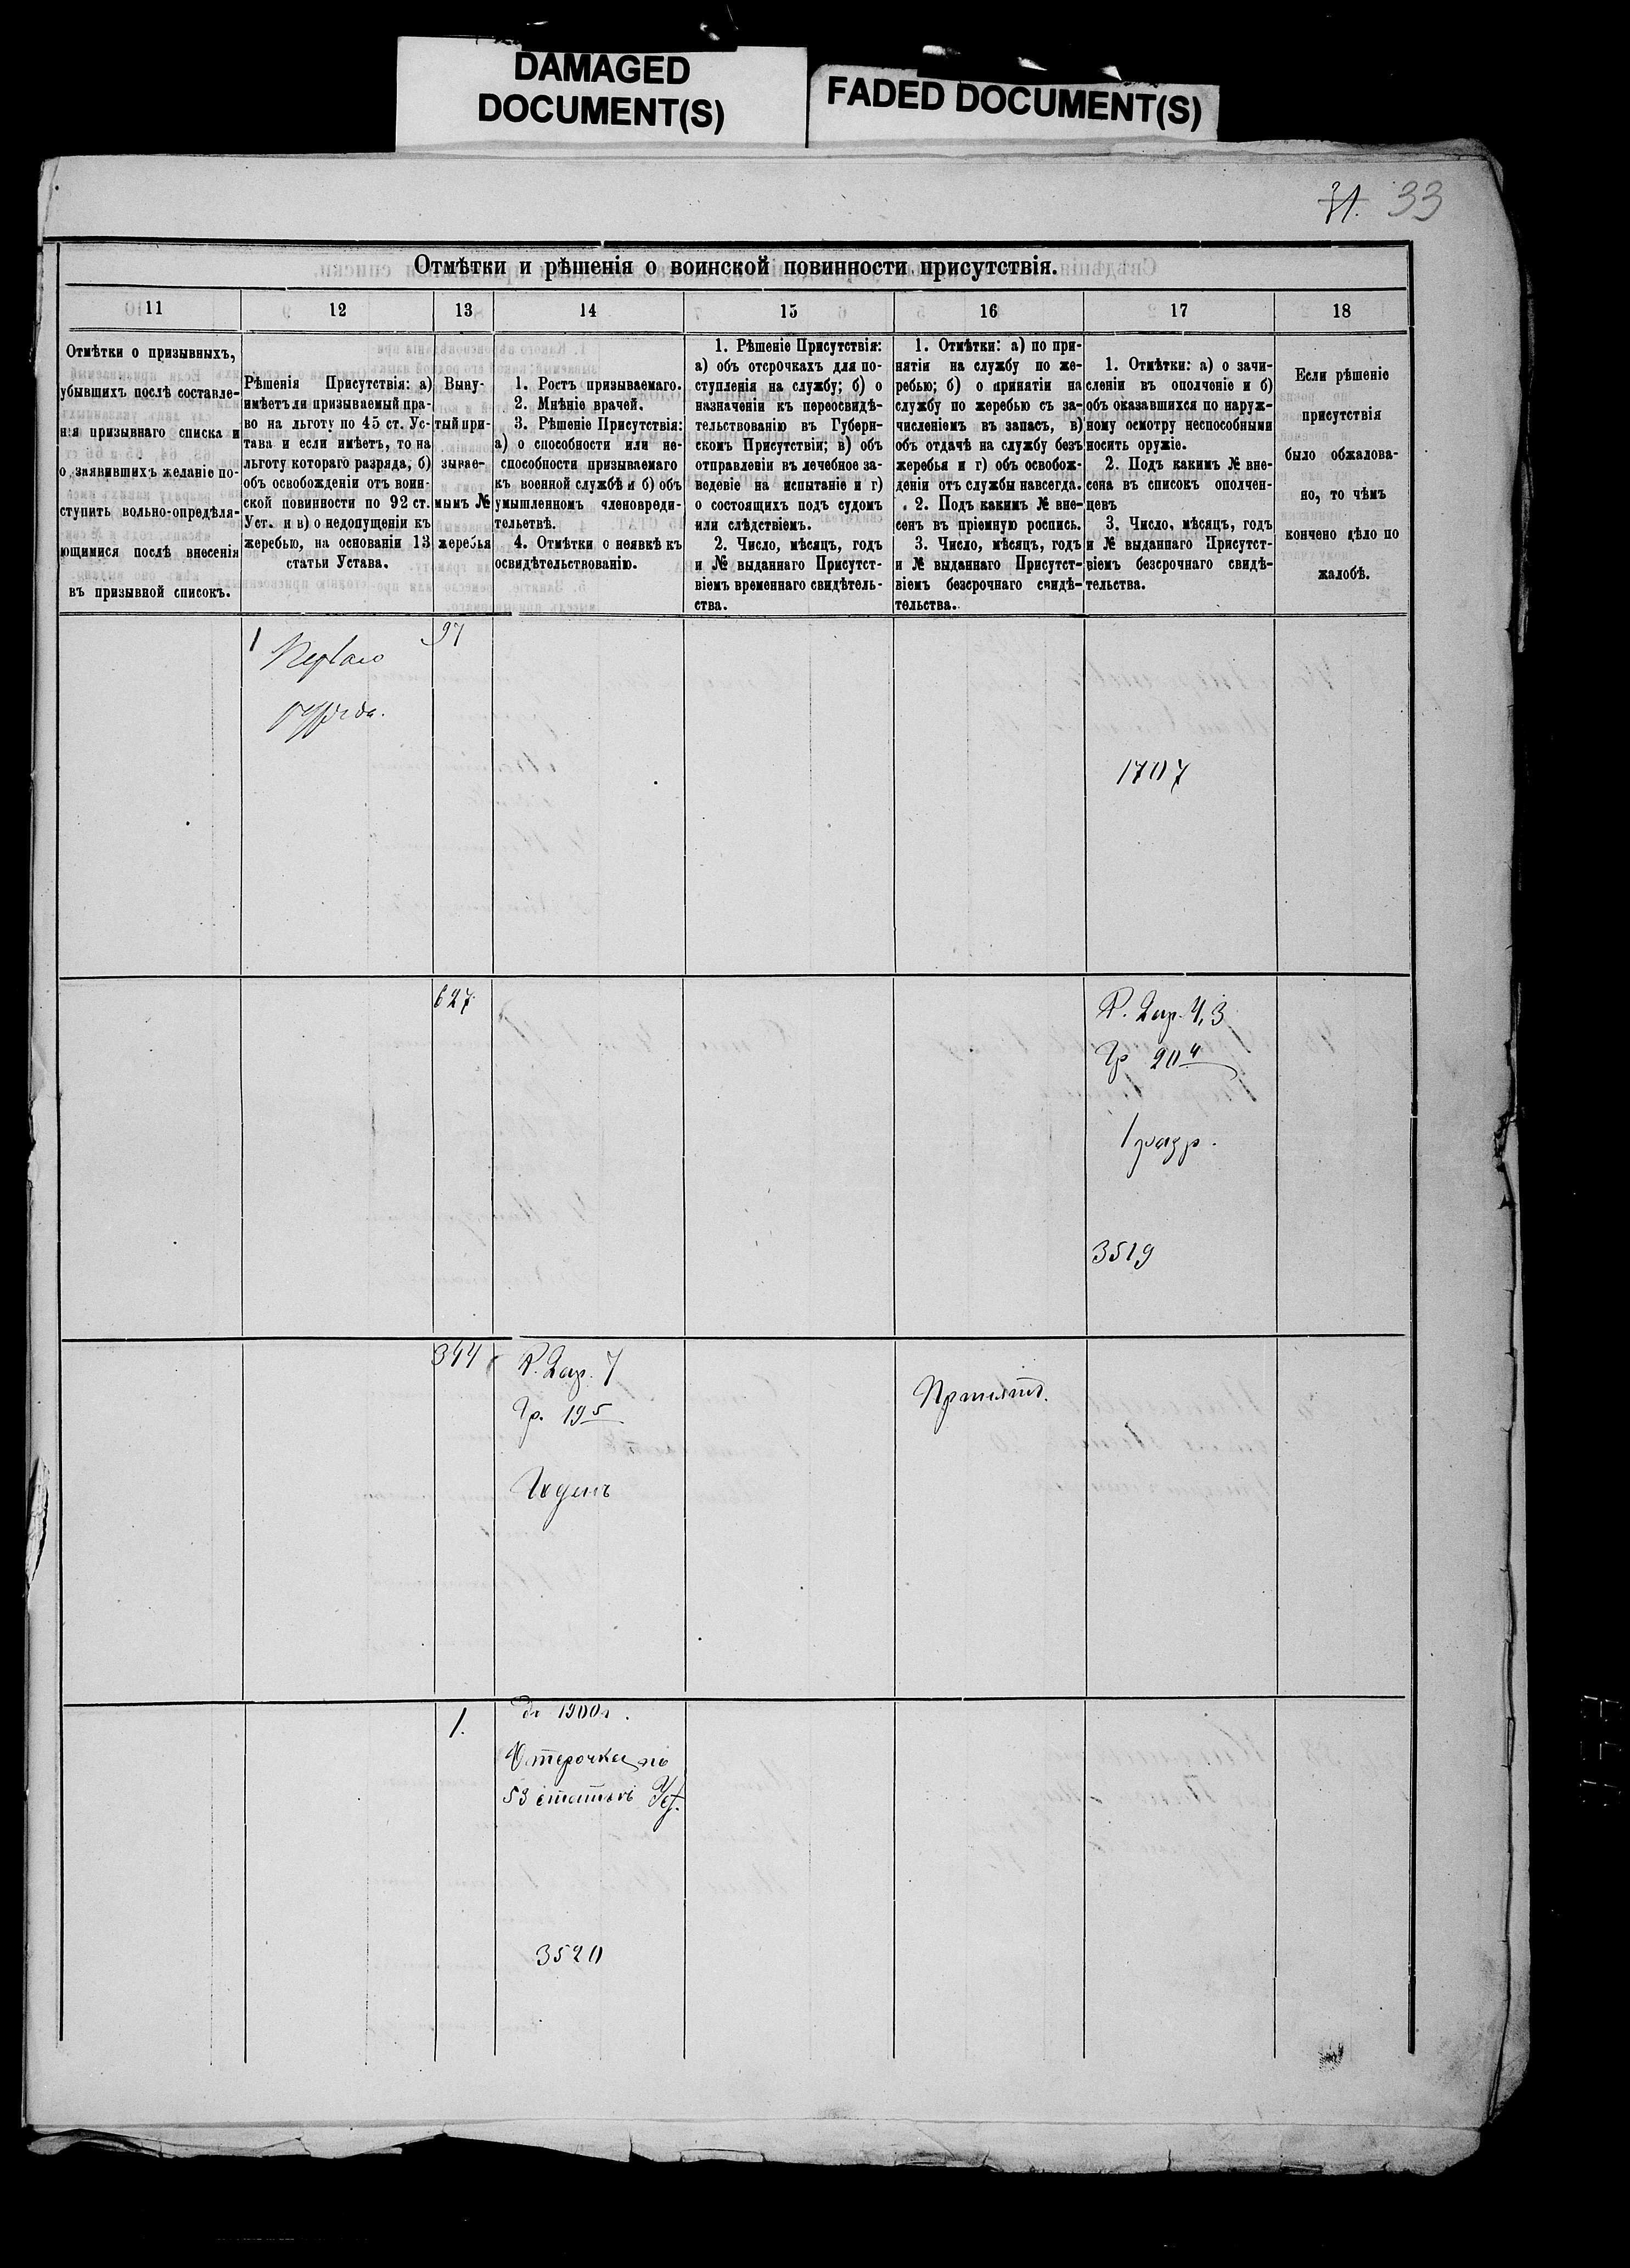 DAMAGED
DOCUMENT(S)
FADED DOCUMENT(S)
31. 33
Отмѣтки и рѣшенія о воинской повинности присутствія.
11 12 13 14 15 16 17 18
Отмѣтки о призывныхъ,
убывшихъ послѣ составле-
нія призывнаго списка и
о заявившихъ желаніе по-
ступить вольно-опредѣля-
ющимися послѣ внесенія
въ призывной списокъ.
Рѣшенія Присутствія: а)
имѣетъ ли призываемый пра-
во на льготу по 45 ст. Ус-
тава и если имѣетъ, то на
льготу котораго разряда, б)
объ освобожденіи отъ воин-
ской повинности по 92 ст.
Уст. и в) о недопущеніи къ
жеребью, на основаніи 13
статьи Устава.
Выну-
тый при-
зывае-
мымъ №
жеребья
1. Ростъ призываемаго.
2. Мнѣніе врачей.
3. Рѣшеніе Присутствія:
а) о способности или не-
способности призываемаго
къ военной службѣ и б) объ
умышленномъ членовреди-
тельетвѣ.
4. Отмѣтки о неявкѣ къ
освидѣтельствованію.
1. Рѣшеніе Присутствія:
а) объ отсрочкахъ для по-
ступленія на службу; б) о
назначеніи къ переосвидѣ-
тельствованію въ Губерн-
скомъ Присутствіи; в) объ
отправленіи въ лечебное за-
веденіе на испытаніе и г)
о состоящихъ подъ судомъ
или слѣдствіемъ.
2. Число, мѣсяцъ, годъ
и № выданнаго Присутст-
віемъ временнаго свидѣтель-
ства.
1. Отмѣтки: а) по при-
нятіи на службу по же-
ребью; б) о принятіи на
службу по жеребью съ за-
численіемъ въ запасъ, в)
объ отдачѣ на службу безъ
жеребья и г) объ освобож-
деніи отъ службы навсегда.
2. Подъ какимъ № вне-
сенъ въ пріемную роспись.
3. Число, мѣсяцъ, годъ
и № выданнаго Присутст-
віемъ безсрочнаго свидѣ-
тельства.
1. Отмѣтки: а) о зачи-
сленіи въ ополченіе и б)
объ оказавшихся по наруж-
ному осмотру неспособными
носить оружіе.
2. Подъ какимъ № вне-
сена въ списокъ ополчен-
цевъ
3. Число, мѣсяцъ, годъ
и № выданнаго Присутст-
віемъ безсрочнаго свидѣ-
тельства.
Если рѣшеніе
присутствія
было обжалова-
но, то чѣмъ
кончено дѣло по
жалобѣ.
1 Перваго
разряда.
97
1707
627
Р. 2 ар. 4,3
Гр 20 4
1 разр.
3519
344
Р. 2 ар. 7
Гр. 19 5
Годенъ
Принятъ.
1.
До 1900 г.
Отсрочка по
53 статьѣ Уст.
3520